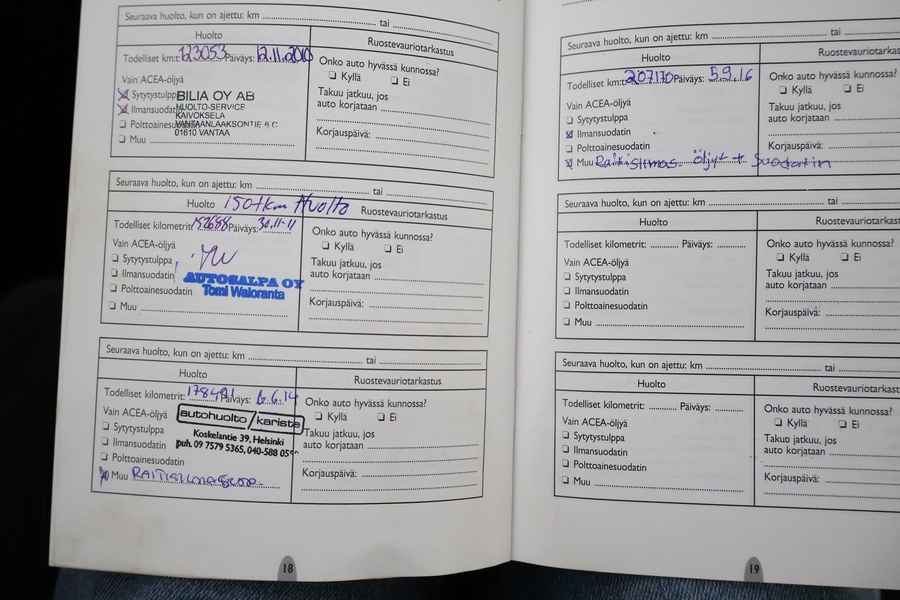 Seuraava huolto, kun on ajettu: km tai
Huolto
Ruostevauriotarkastus
Todelliset km:t: 123053 Päiväys: 12.11.2010
Onko auto hyvässä kunnossa?
Kyllä Ei
Vain ACEA-öljyä
Takuu jatkuu, jos
auto korjataan
Sytytystulppa
Ilmansuodatin
Polttoainesuodatin
Muu
BILIA OY AB
HUOLTO-SERVICE
KAIVOKSELA
VANTAANLAAKSONTIE 6 C
01610 VANTAA
Korjauspäivä:
Seuraava huolto, kun on ajettu: km tai
Huolto 150tkm Huolto
Ruostevauriotarkastus
Todelliset kilometrit: 152688 Päiväys: 30.11-11
Onko auto hyvässä kunnossa?
Kyllä Ei
Vain ACEA-öljyä
Takuu jatkuu, jos
auto korjataan
Sytytystulppa
Ilmansuodatin
Polttoainesuodatin
Muu
AUTOSALPA OY
Tomi Waloranta
Korjauspäivä:
Seuraava huolto, kun on ajettu: km tai
Huolto
Ruostevauriotarkastus
Todelliset kilometrit: 178491 Päiväys: 6.6.14
Onko auto hyvässä kunnossa?
Kyllä Ei
Vain ACEA-öljyä
Takuu jatkuu, jos
auto korjataan
Sytytystulppa
Ilmansuodatin
Polttoainesuodatin
autohuolto/karista
Koskelantie 39, Helsinki
puh. 09 7579 5365, 040-588 05
Muu
Korjauspäivä:
18
Seuraava huolto, kun on ajettu: km
Huolto
Todelliset km:t: 207170 Päiväys: 5.9.16
Onko auto hyvässä kunnossa?
Kyllä Ei
Vain ACEA-öljyä
Takuu jatkuu, jos
auto korjataan
Sytytystulppa
Ilmansuodatin
Polttoainesuodatin
Korjauspäivä:
Muu Raitisilmas. öljyt + Suodatin
Seuraava huolto, kun on ajettu: km tai
Huolto
Todelliset kilometrit: Päiväys:
Onko auto hyvässä kunnossa?
Kyllä Ei
Vain ACEA-öljyä
Takuu jatkuu, jos
auto korjataan
Sytytystulppa
Ilmansuodatin
Polttoainesuodatin
Korjauspäivä:
Muu
Seuraava huolto, kun on ajettu: km tai
Huolto
Todelliset kilometrit: Päiväys:
Onko auto hyvässä kunnossa?
Kyllä Ei
Vain ACEA-öljyä
Takuu jatkuu, jos
auto korjataan
Sytytystulppa
Ilmansuodatin
Polttoainesuodatin
Korjauspäivä:
Muu
19